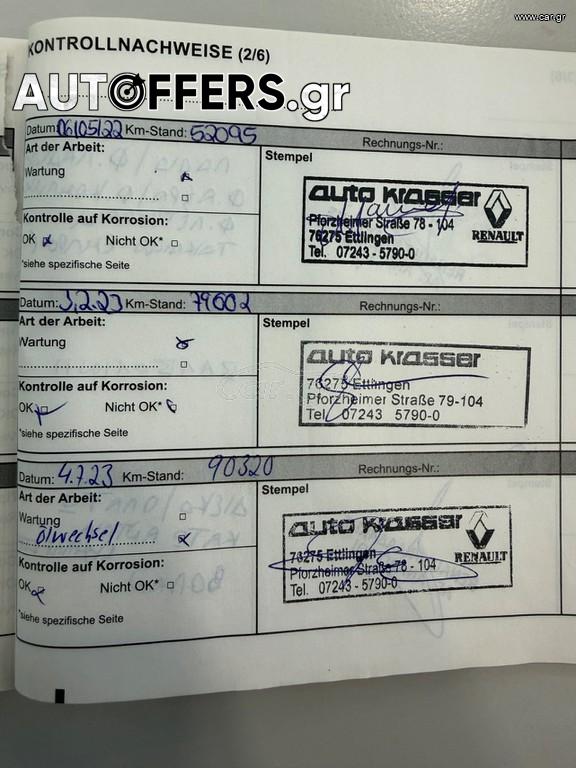 www.car.gr
KONTROLLNACHWEISE (2/6)
AUTOFFERS.gr
Datum: 06/05/22 Km-Stand: 52095 Rechnungs-Nr.:
Art der Arbeit:
Stempel
Wartung
auto Krasser
Pforzheimer Straße 78 - 104
76275 Ettlingen
Tel. 07243 - 5790-0
RENAULT
Kontrolle auf Korrosion:
OK x Nicht OK*
*siehe spezifische Seite
Datum: 3.2.23 Km-Stand: 79602 Rechnungs-Nr.:
Art der Arbeit:
Stempel
Wartung
auto Krasser
76275 Ettlingen
Pforzheimer Straße 79-104
Tel. 07243 5790-0
Kontrolle auf Korrosion:
OK Nicht OK*
*siehe spezifische Seite
Datum: 4.7.23 Km-Stand: 90320 Rechnungs-Nr.:
Art der Arbeit:
Stempel
Wartung
Ölwechsel
auto Krasser
76275 Ettlingen
Pforzheimer Straße 78 - 104
Tel. 07243 - 5790-0
RENAULT
Kontrolle auf Korrosion:
OK Nicht OK*
*siehe spezifische Seite